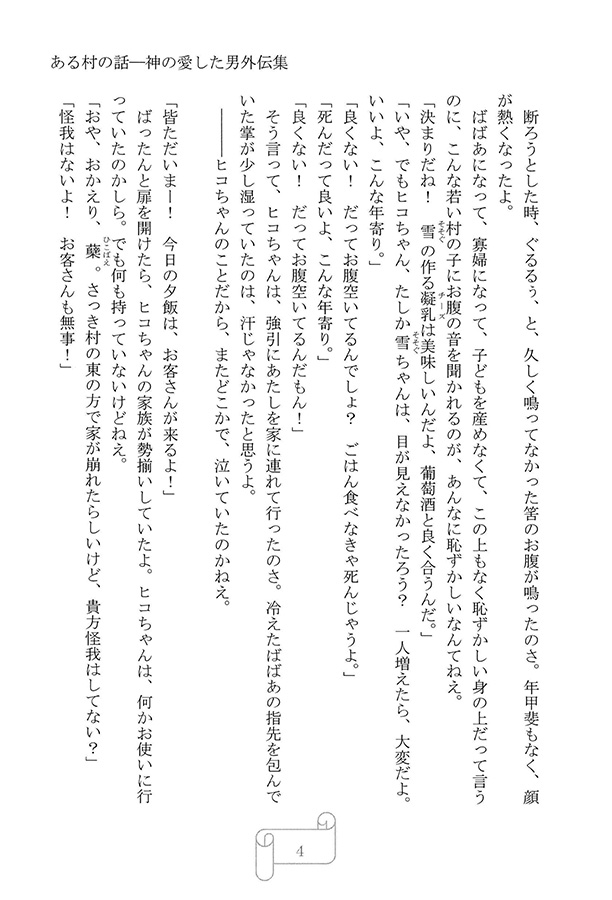 ある村の話―神の愛した男外伝集
　断ろうとした時、ぐるるぅ、と、久しく鳴ってなかった筈のお腹が鳴ったのさ。年甲斐もなく、顔
が熱くなったよ。
　ばばあになって、寡婦になって、子どもを産めなくて、この上もなく恥ずかしい身の上だって言う
のに、こんな若い村の子にお腹の音を聞かれるのが、あんなに恥ずかしいなんてねえ。
「決まりだね！　雪の作る凝乳は美味しいんだよ、葡萄酒と良く合うんだ。」
「いや、でもヒコちゃん、たしか雪ちゃんは、目が見えなかったろう？　一人増えたら、大変だよ。
いいよ、こんな年寄り。」
「良くない！　だってお腹空いてるんでしょ？　ごはん食べなきゃ死んじゃうよ。」
「死んだって良いよ、こんな年寄り。」
「良くない！　だってお腹空いてるんだもん！」
　そう言って、ヒコちゃんは、強引にあたしを家に連れて行ったのさ。冷えたばばあの指先を包んで
いた掌が少し湿っていたのは、汗じゃなかったと思うよ。
　――――ヒコちゃんのことだから、またどこかで、泣いていたのかねえ。
「皆ただいまー！　今日の夕飯は、お客さんが来るよ！」
　ばったんと扉を開けたら、ヒコちゃんの家族が勢揃いしていたよ。ヒコちゃんは、何かお使いに行
っていたのかしら。でも何も持っていないけどねえ。
「おや、おかえり、蘖。さっき村の東の方で家が崩れたらしいけど、貴方怪我はしてない？」
「怪我はないよ！　お客さんも無事！」
4